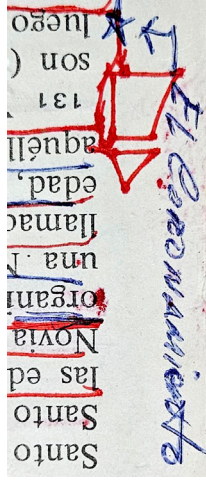 Santo
Santo
las ed
Novia
organi
una
llamad
edad,
aquéll
131
son (
luego
El Coronamiento